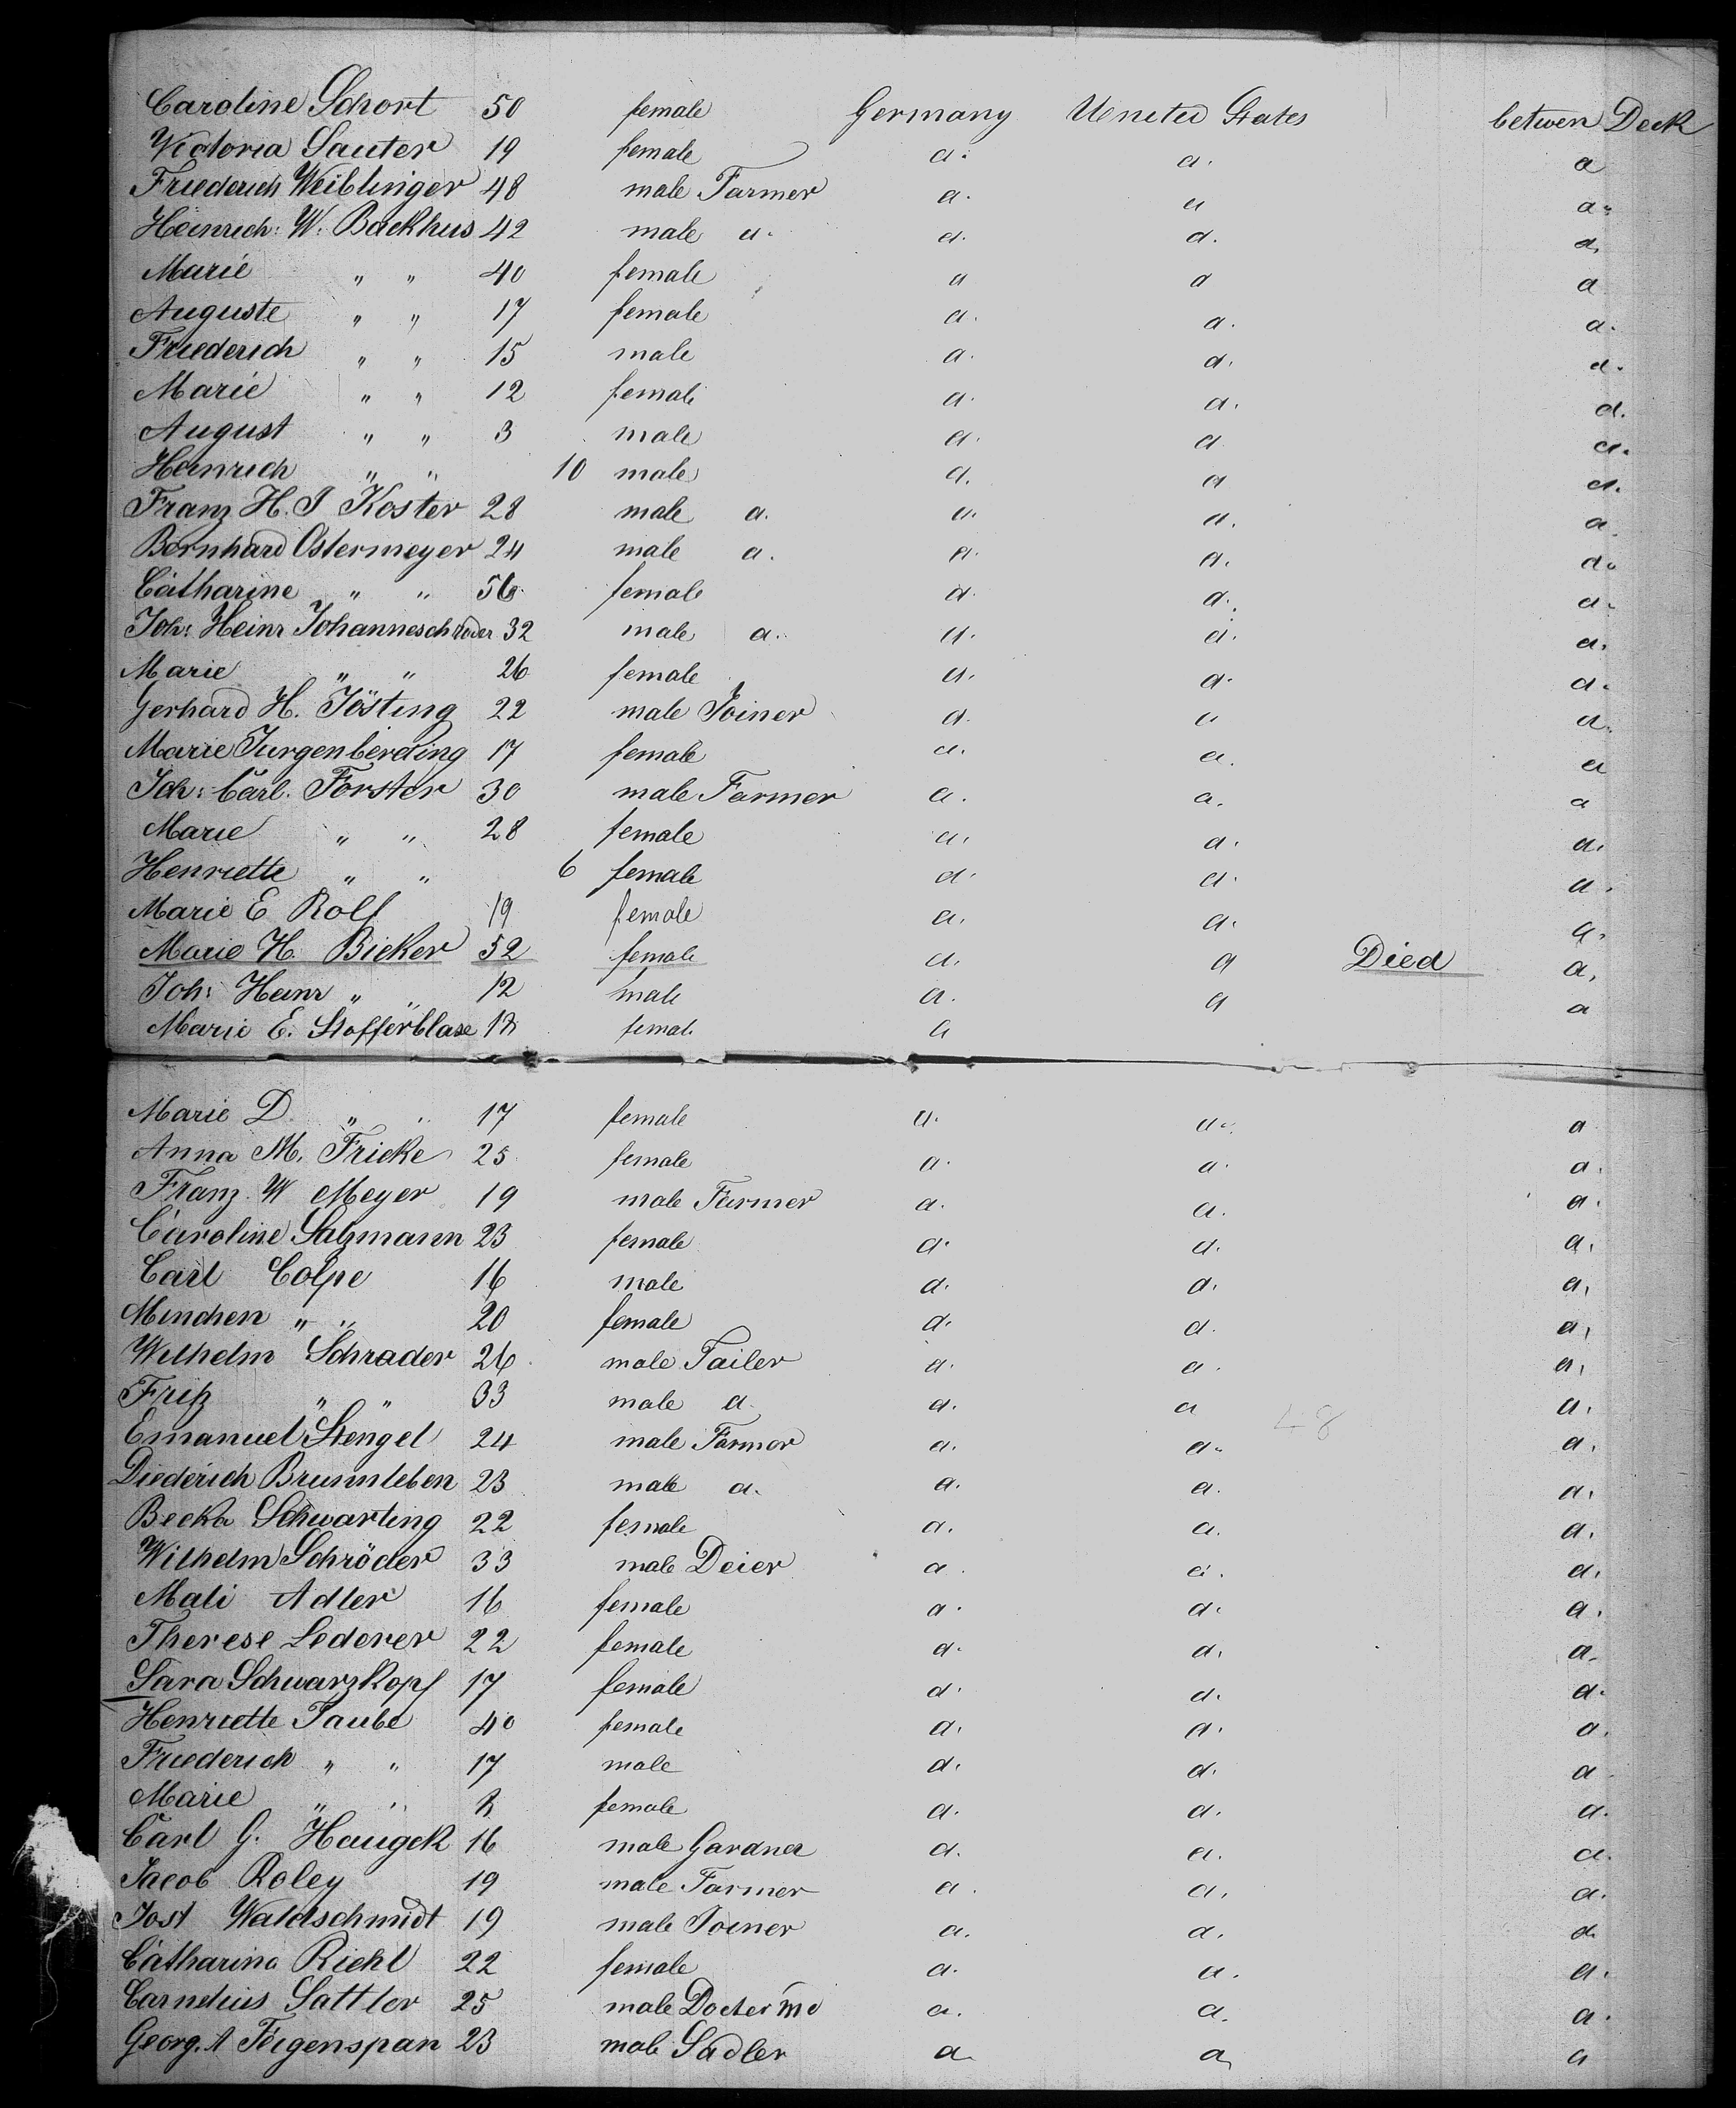 Caroline Schort 50 female Germany Uneted States betwen Deck
Victoria Sauter 19 female a. a. a
Friederich Weiblinger 48 male Farmer a. a a.
Heinrich: W. Backhus 42 male a. a. a. a.
Marie " " 40 female a a a
Auguste " " 17 female a. a. a.
Friederich " " 15 male a. a. a.
Marie " " 12 female a. a. a.
August " " 3 male a. a a.
Heinrich " " 10 male a. a a.
Franz H. J Koster 28 male a. a. a. a
Bernhard Ostermeyer 24 male a. a. a. a.
Catharine " " 56 female a. a. a.
Joh: Heinr Johanneschröder 32 male a. a. a. a.
Marie " " 26 female a. a. a.
Gerhard H. Jösting 22 male Joiner a. a a.
Marie Jurgenberding 17 female a. a. a
Joh: Carl. Forster 30 male Farmer a. a. a
Marie " " 28 female a. a. a.
Henriette " " 6 female a. a. a.
Marie E Rolf 19 female a. a. a.
Marie H. Bieker 52 female a. a Died a.
Joh: Heinr " " 12 male a. a a
Marie E. Stofferblase female a
Marie D. " " 17 female a. a. a
Anna M. Fricke 25 female a. a. a.
Franz. W Meyer 19 male Farmer a. a. a.
Caroline Salzmann 23 female a. a. a.
Carl Colpe 16 male a. a. a.
Minchen " " 20 female a. a. a.
Wilhelm Schrader 26 male Tailer a. a. a.
Fritz " " 33 male a. a. a a.
Emanuel Stengel 24 male Farmer a. a. a.
Diederich Brunnleben 23 male a. a. a. a.
Becka Schwarting 22 female a. a. a.
Wilhelm Schröder 33 male Deier a. a. a.
Mali Adler 16 female a. a. a.
Therese Lederer 22 female a. a. a.
Sara Schwarzkopf 17 female a. a. a.
Henriette Taube 40 female a. a. a.
Friederich " " 17 male a. a. a
Marie " " female a. a. a.
Carl G. Haugck 16 male Gardner a. a. a.
Jacob Roley 19 male Farmer a. a. a.
Jost Waldschmidt 19 male Joiner a. a. a
Catharina Riehl 22 female a. a. a.
Carnelius Sattler 25 male Docter a. a. a.
Georg. A Feigenspan 23 male Sadler a a a